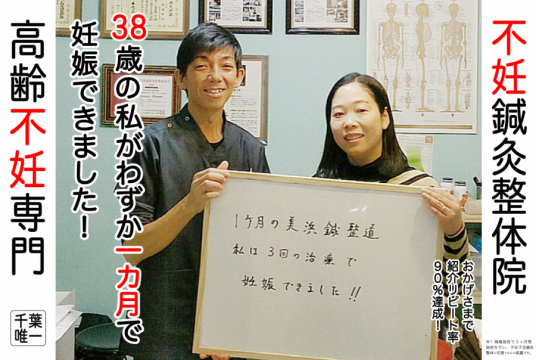 不妊鍼灸整体院
おかげさまで
紹介リピート率
90%達成！
38歳の私がわずか一カ月で
妊娠できました！
高齢不妊専門
千葉
唯一
1ヶ月の美浜鍼整道
私は3回の治療で
妊娠できました!!